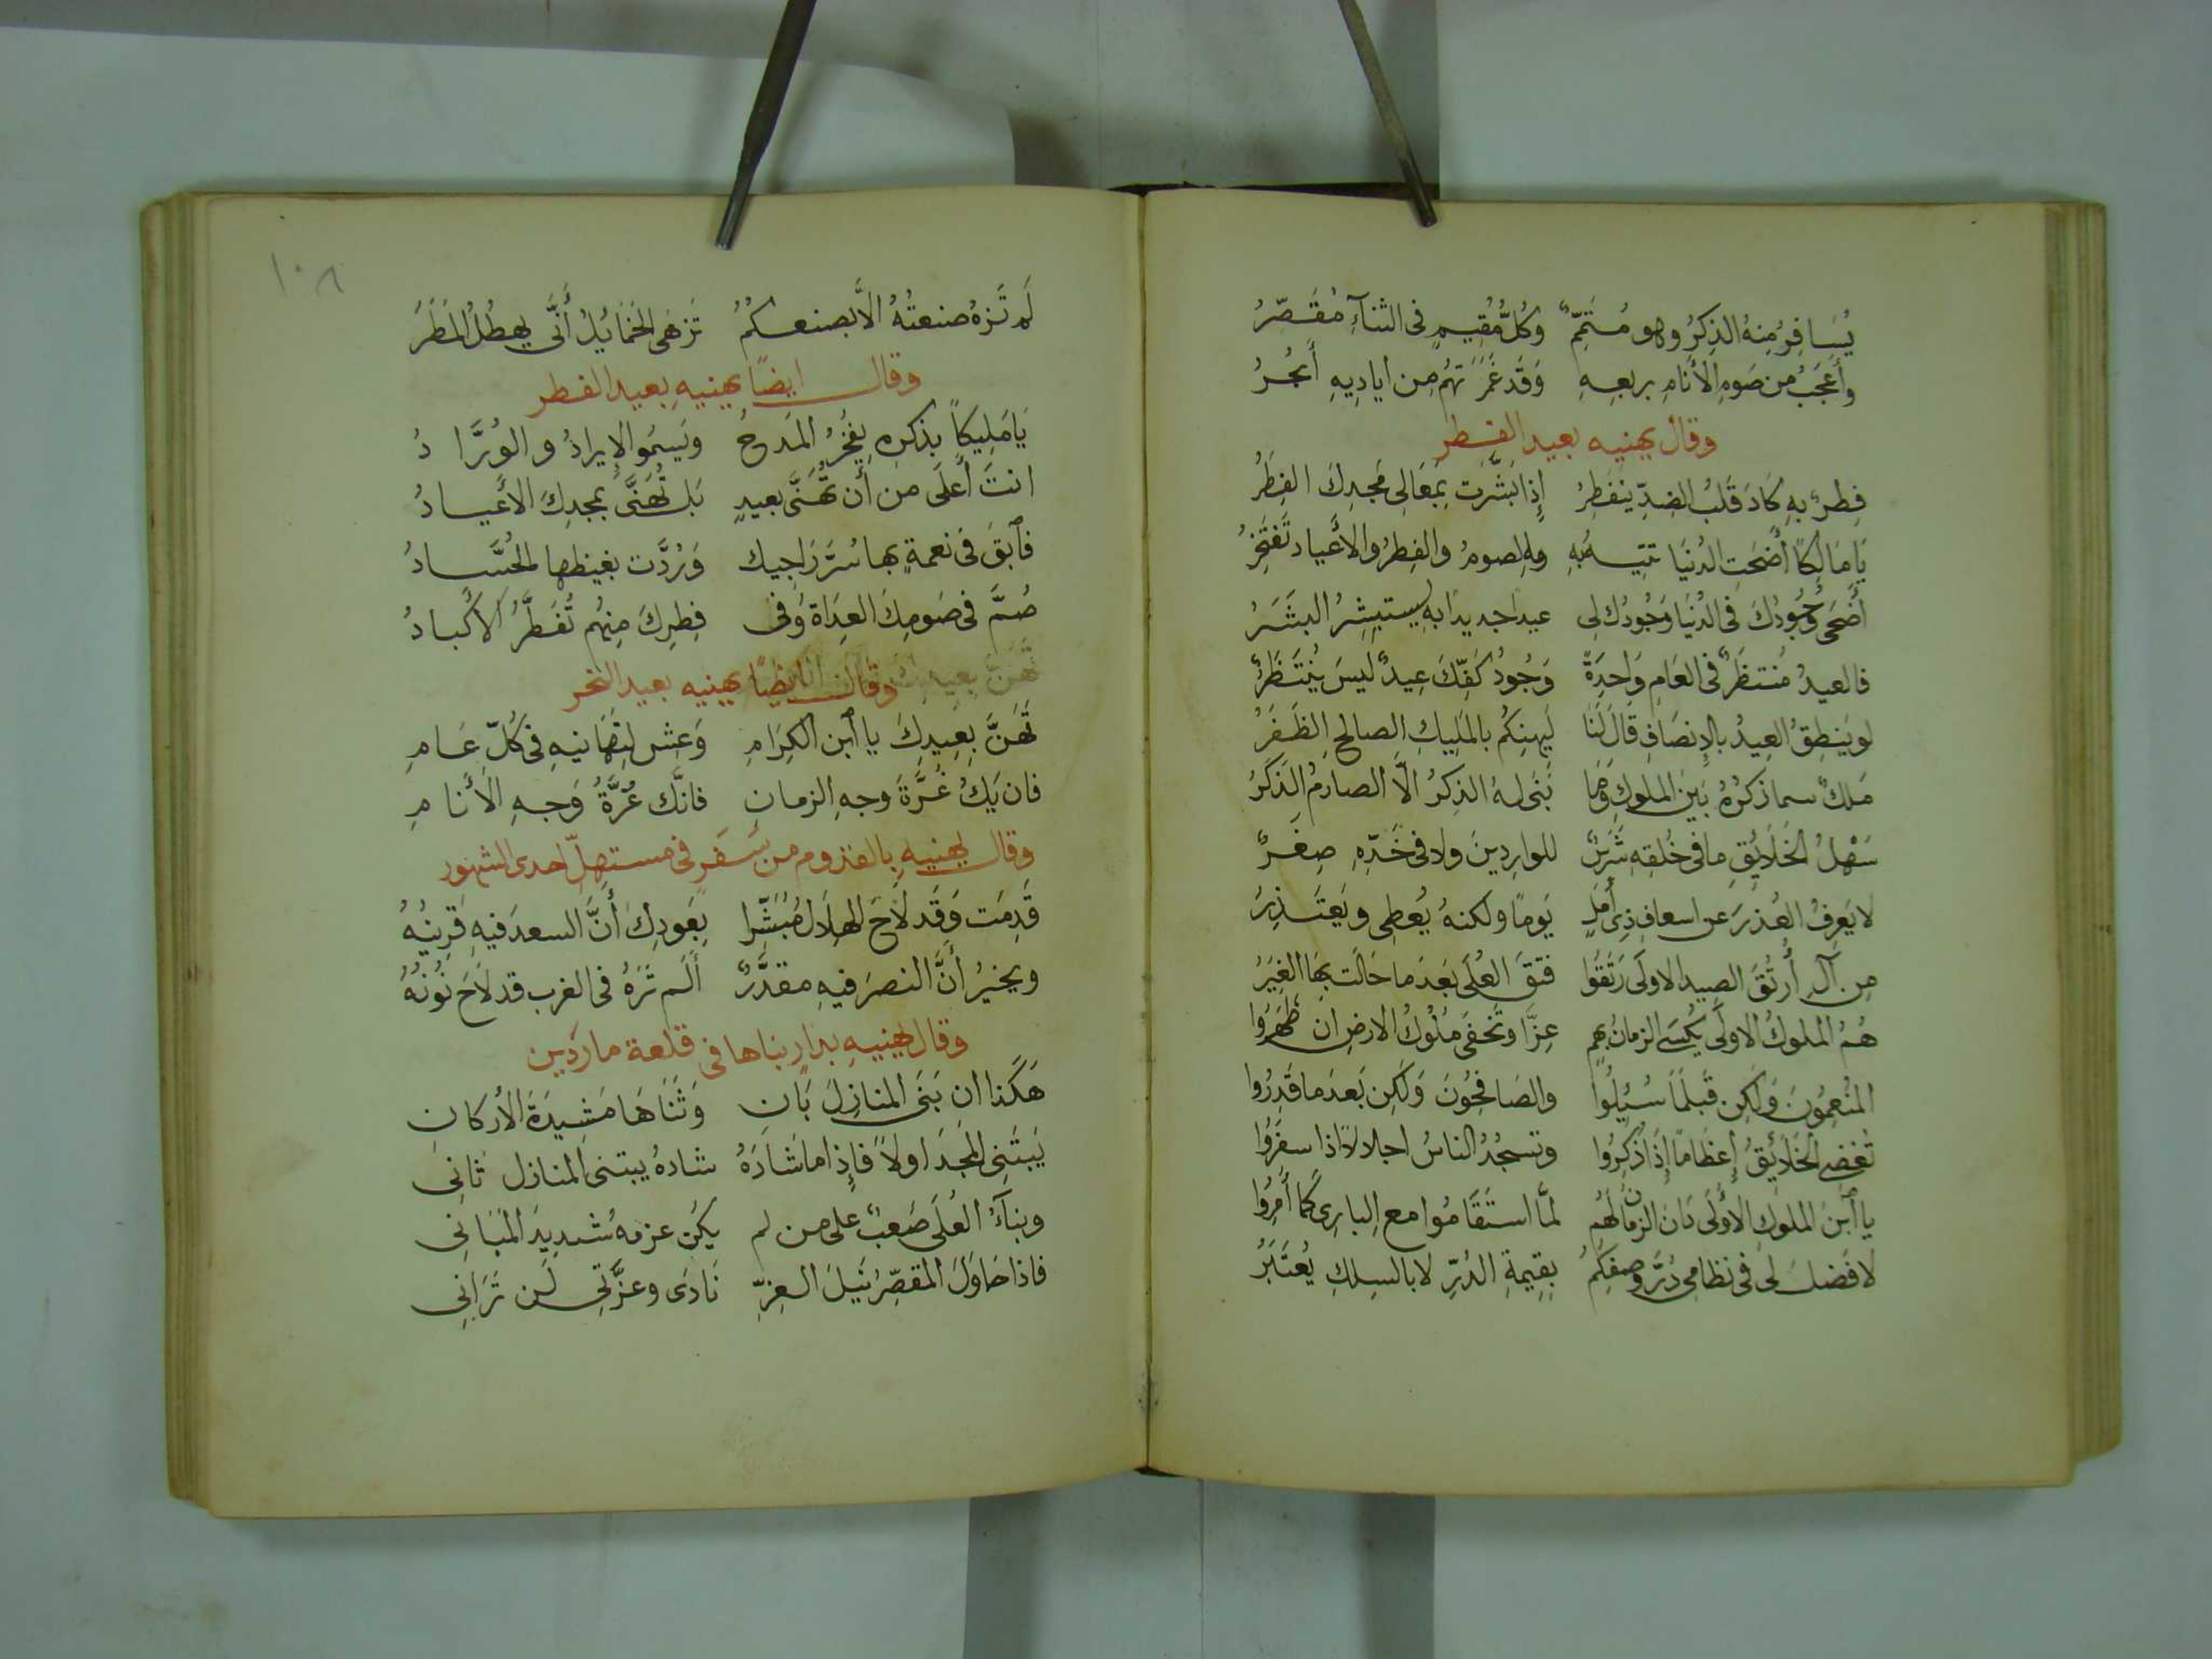 يُسَافِرُ مِنهُ الذِكرُ وهو مُتَمِّمٌ وكُلُّ مُقيمٍ فى الثنآءِ مُقَصِّرُ
وأَعجَبُ من صَومِ الأَنامِ بربعهِ وَقَد غَمَرَتهُم مِن أَياديهِ أَبحُرُ
وقال يهنيه بعيد الفطر
فِطرٌ بهِ كَادَ قَلبُ الضِدِّ يَنفَطِرُ إِذا بَشَّرَت بمَعَالى مَجدِكَ الفِطَرُ
يَا مَالِكًا أَضحَتِ الدُنيَا تتيهُ بهِ والصومُ والفِطرُ والأَعياد تَفتَخِرُ
أَضحَى وُجُودُكَ فى الدُنيَا وَجُودُك لى عيدا جديدًا به يستبشِرُ البَشَرُ
فالعيدُ مُنتظَرٌ فى العَامِ وَاحِدَةً وَجُودُ كَفِّكَ عِيدٌ لَيسَ يُنتَظَرُ
لو يَنطِقُ العِيدُ بالإِنصَافِ قَالَ لَنَا لَيهنِكُم بالمَلِيكِ الصالحِ الظَفَرُ
مَلكٌ سما ذكرُهُ بَين الملوكِ وَمَا نَبَى لهُ الذِكرُ الَّا الصارمُ الذَكَرُ
سَهلُ الخَلَائِقِ ما فى خُلقهِ شَرَسٌ للوارِدِينَ ولا فى خَدِّهِ صِعَرٌ
لا يَعرِفُ العُذرَ عن اسعافِ ذِى أَمَلٍ يَومًا ولكنهُ يُعطِى ويَعتَذِرُ
مِن آلِ أُرتُقَ الصِيد الاولَى رَتَقُوا فتقَ العُلَى بَعدَما حَالَت بِهَا الغِيَرُ
هُمُ الملوكُ الاولَى يُكسَى الزمانُ بهم عِزًّا وتَخفَى مُلُوكُ الارضِ ان ظَهَرُوا
المُنعِمُونَ وَلكِن قَبلَمَا سُئِلُوا والصَافِحُونَ وَلكِن بَعدَما قَدِرُوا
تُغضِى الخَلَائِقُ إِعظَامًا إِذَا ذُكِرُوا وتسجُدُ الناسُ اجلالًا اذا سفَرُوا
يا ابنَ الملوكِ الأُولَى دَانَ الزمانُ لَهُم لمَّا استَقَامُوا مع البارِى كَمَا أُمِرُوا
لا فَضلَ لى فى نظامى دُرَّ وصفِكُمُ بقِيمةِ الدُرِّ لا بالسِلكِ يُعتَبَرُ
١٠٨
لَم تَزهُ صنعتُهُ الَّا بصنعِكُمُ تَزهَى الخمَائِلُ أَنَّى يهطُلُ المَطَرُ
وقال ايضًا يهنيهِ بعيد الفطر
يَا مَلِيكًا بذكرِهِ يفخَرُ المَدحُ ويَسمُو الإِيرادُ والوُرَّادُ
انتَ أَعلَى من أَن تُهَنَّى بعيدٍ بَل تُهَنَّى بمجدِكَ الأَعيادُ
فابقَ فى نعمةٍ بها سُرَّ رَاجِيك وَرُدَّت بغيظها الحُسَّادُ
صُمَّ فى صَومِكَ العِدَاة وُفى فِطرِكَ مِنهُم تُفَطَّرُ الأَكبادُ
وقال ايضًا يهنيه بعيد النحر
تَهَنَّ بعِيدِكَ يا ابن الكِرَامِ وَعِش لتهَانيهِ فى كُلِّ عَامِ
فان يَكُ غُرَّةَ وجهِ الزمانِ فانَّك غُرَّةُ وَجهِ الأَنامِ
وقال يهنيهِ بالقدوم من سَفَرٍ فى مستهلّ احدى الشهور
قَدِمتَ وَقَد لَاحَ الهِلَال مُبَشِّرا بِعَودِكَ أَنَّ السعدَ فيهِ قَرِينُهُ
ويخبرُ أَنَّ النصرَ فيهِ مقدَّرٌ أَلَم تَرَهُ فى الغرب قد لَاحَ نُونُهُ
وقال يهنيهِ بدارٍ بناها فى قلعة ماردين
هَكَذا ان بَنَى المنازِلَ بَانِ وَثَنَاهَا مَشِيدَةَ الأَركانِ
يَبتَنِى المَجدَ اولاً فَإِذا ما شَادَهُ شادهُ يبتنى المنازل ثانِى
وبنآءُ العُلَى صَعبٌ على من لم يكن عزمهُ شديدَ المَبَانِى
فاذا حَاوَلَ المقصِّرُ نَيلَ العِزِّ نَادَى وعزَّتِى لَن تَرَانِى